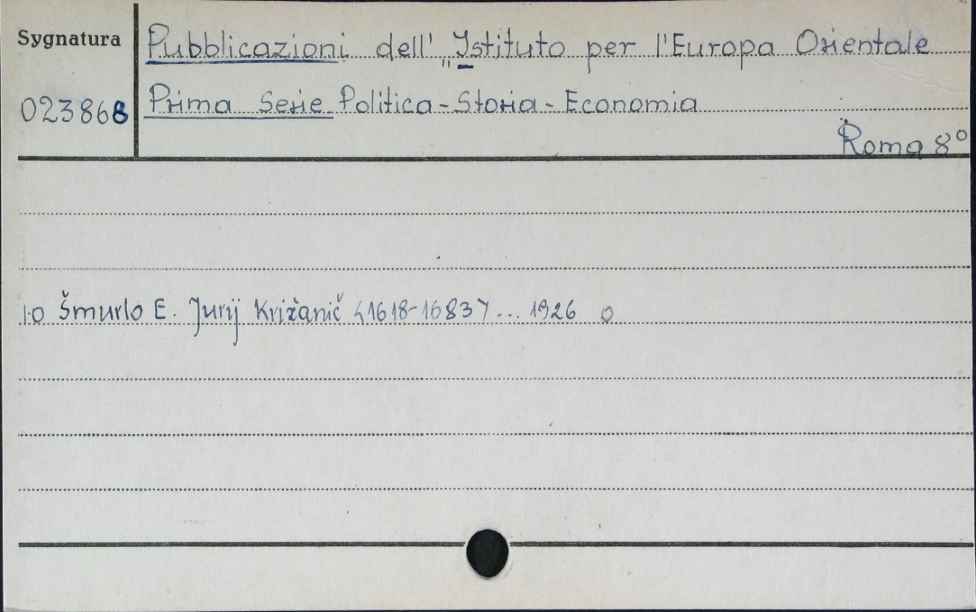 Sygnatura
023868
Pubblicazioni dell' „Istituto per l'Europa Orientale
Prima Serie Politica - Storia - Economia
Roma 8°
10 Šmurlo E. Jurij Križanič <1618-1683> ... 1926 o